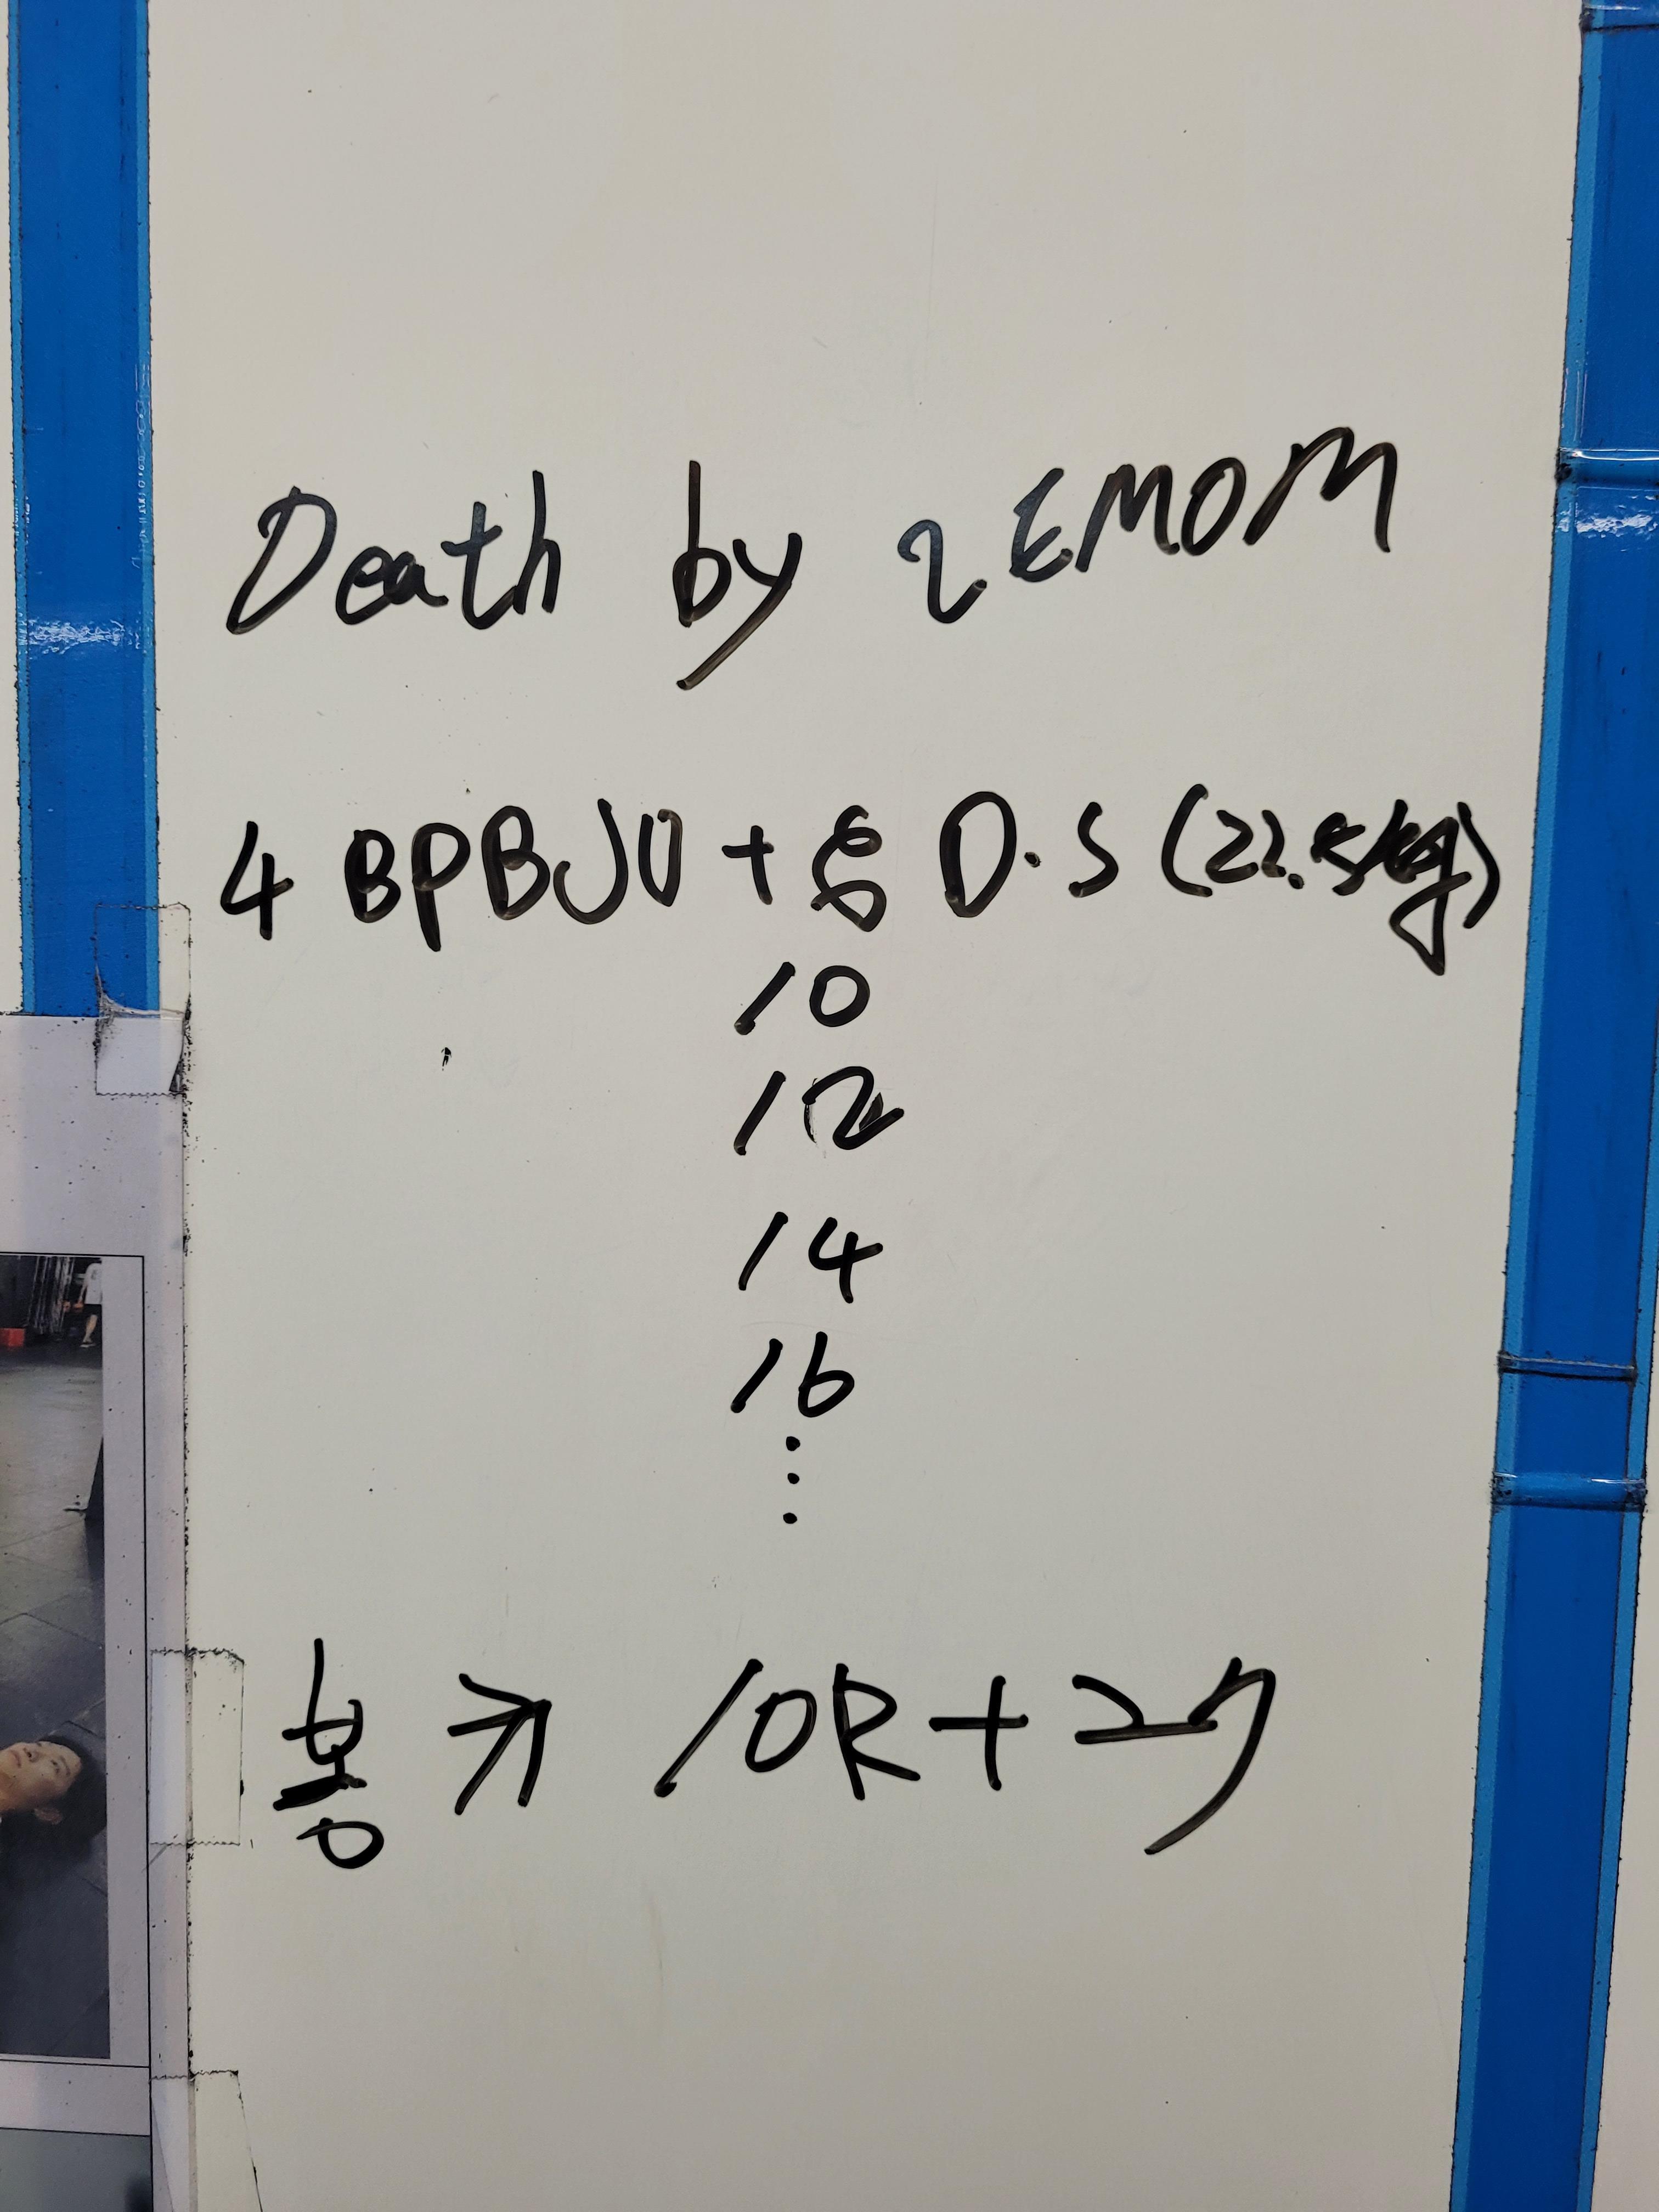 Death by 2EMOM
4 BPBJO + 8 D.S (22.5kg)
10
12
14
16
⋮
봉ㅉ 10R + 27